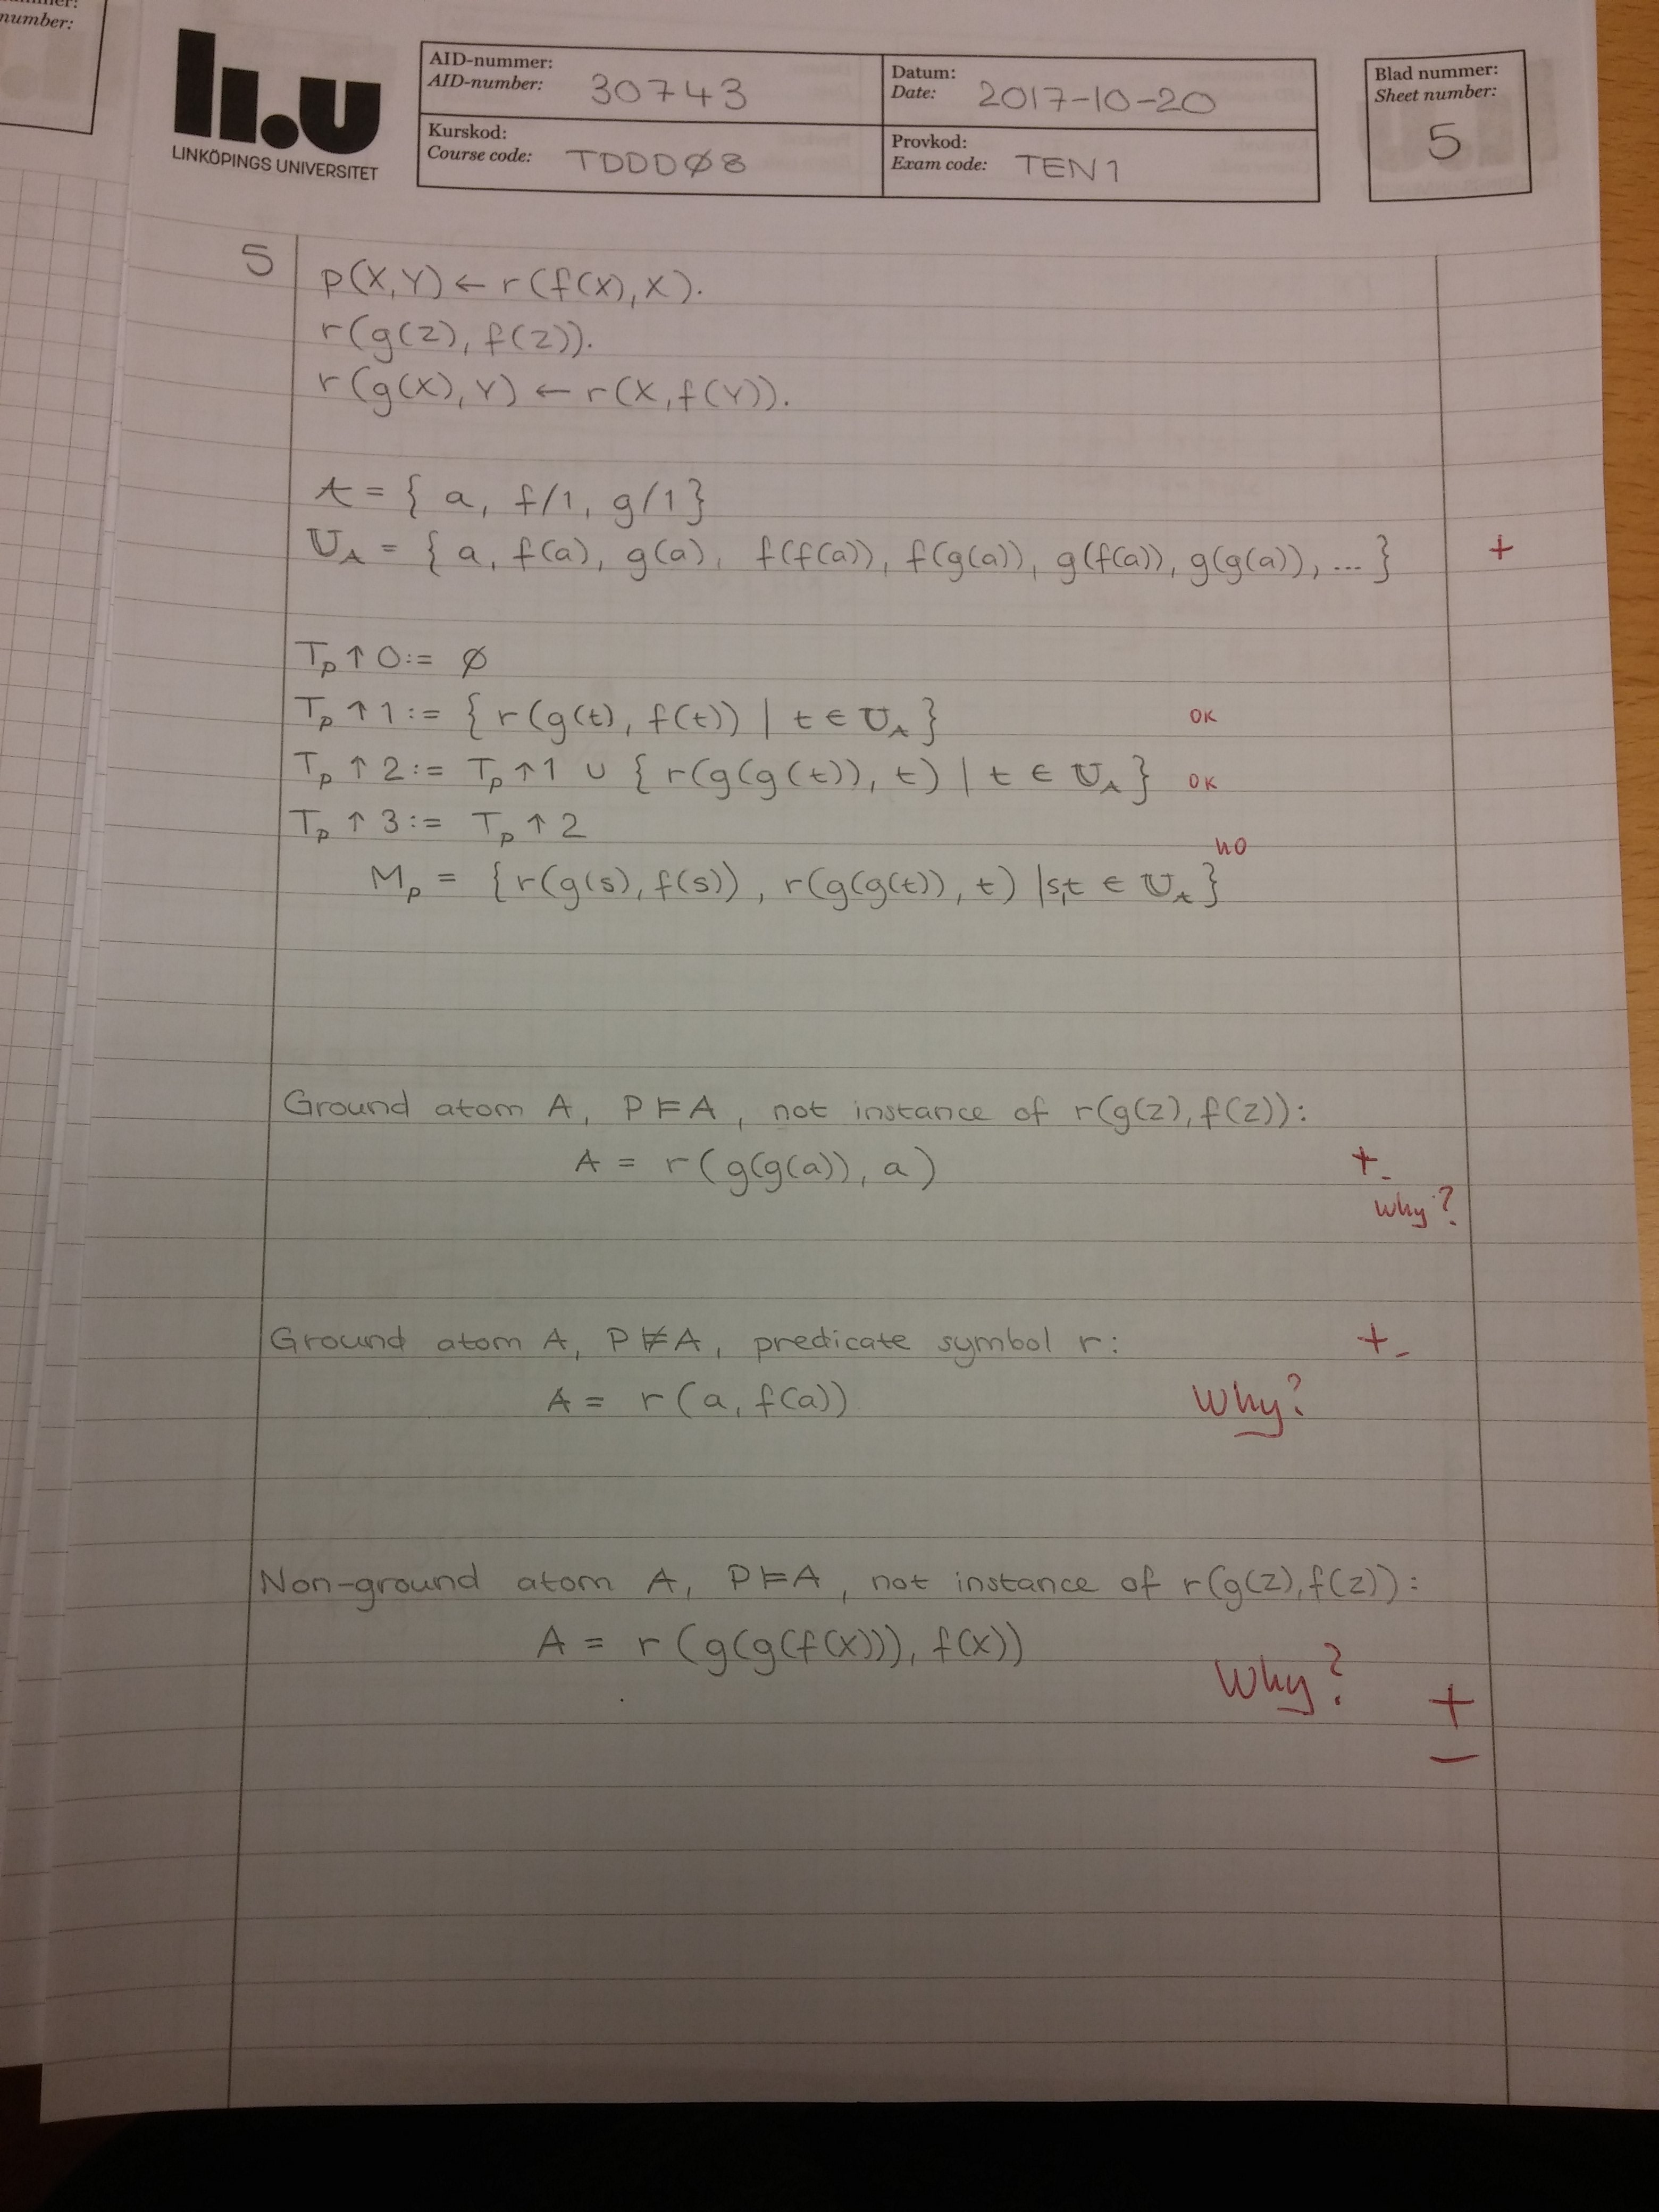 number:
LINKÖPINGS UNIVERSITET
AID-nummer:
AID-number: 30743
Datum:
Date: 2017-10-20
Kurskod:
Course code: TDDDØ8
Provkod:
Exam code: TEN1
Blad nummer:
Sheet number:
5
5
p(X,Y) ← r(f(X),X).
r(g(Z), f(Z)).
r(g(X),Y) ← r(X,f(Y)).
A = { a, f/1, g/1}
U_A = { a, f(a), g(a), f(f(a)), f(g(a)), g(f(a)), g(g(a)), ... } +
T_P ↑ 0 := ∅
T_P ↑ 1 := { r(g(t), f(t)) | t ∈ U_A } OK
T_P ↑ 2 := T_P ↑ 1 ∪ { r(g(g(t)), t) | t ∈ U_A } OK
T_P ↑ 3 := T_P ↑ 2
no
M_P = { r(g(s), f(s)), r(g(g(t)), t) | s,t ∈ U_A }
Ground atom A, P⊨A, not instance of r(g(Z), f(Z)):
A = r(g(g(a)), a) +-
Why?
Ground atom A, P⊭A, predicate symbol r: +-
A = r(a, f(a)) Why?
Non-ground atom A, P⊨A, not instance of r(g(Z), f(Z)):
A = r(g(g(f(X))), f(X))
Why? +
-